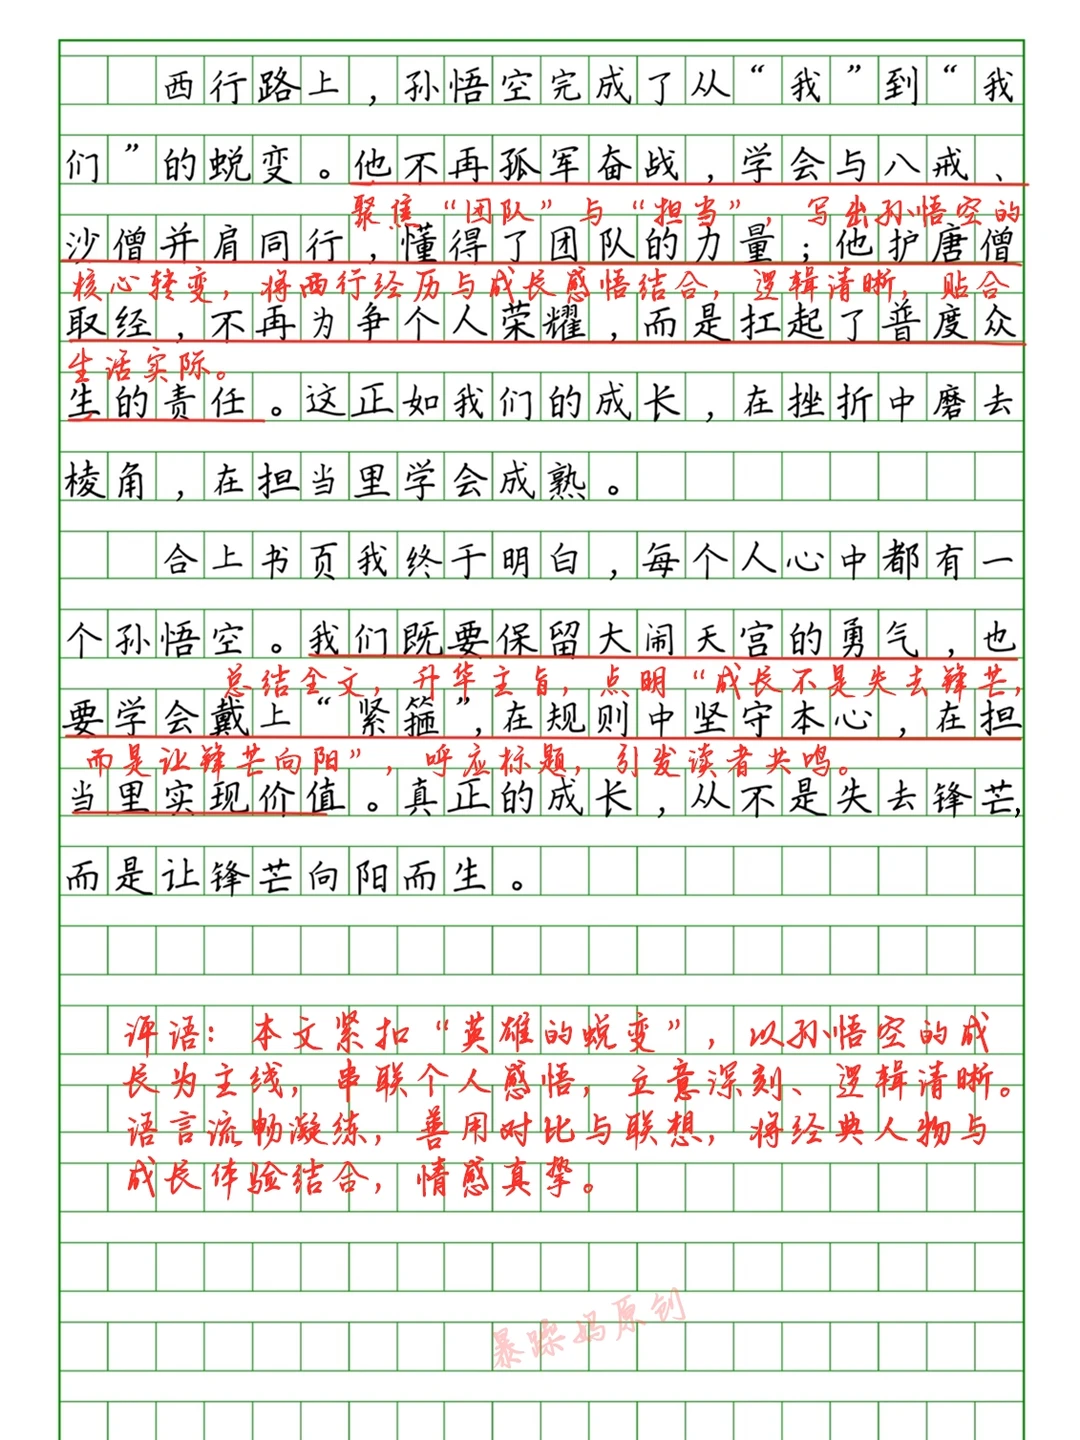 西行路上，孙悟空完成了从“我”到“我
们”的蜕变。他不再孤军奋战，学会与八戒、
聚焦“团队”与“担当”，写出孙悟空的
沙僧并肩同行，懂得了团队的力量；他护唐僧
核心转变，将西行经历与成长感悟结合，逻辑清晰，贴合
取经，不再为争个人荣耀，而是扛起了普度众
生活实际。
生的责任。这正如我们的成长，在挫折中磨去
棱角，在担当里学会成熟。
合上书页我终于明白，每个人心中都有一
个孙悟空。我们既要保留大闹天宫的勇气，也
总结全文，升华主旨，点明“成长不是失去锋芒，
要学会戴上“紧箍”，在规则中坚守本心，在担
而是让锋芒向阳”，呼应标题，引发读者共鸣。
当里实现价值。真正的成长，从不是失去锋芒，
而是让锋芒向阳而生。
评语：本文紧扣“英雄的蜕变”，以孙悟空的成
长为主线，串联个人感悟，立意深刻、逻辑清晰。
语言流畅凝练，善用对比与联想，将经典人物与
成长体验结合，情感真挚。
暴躁妈原创